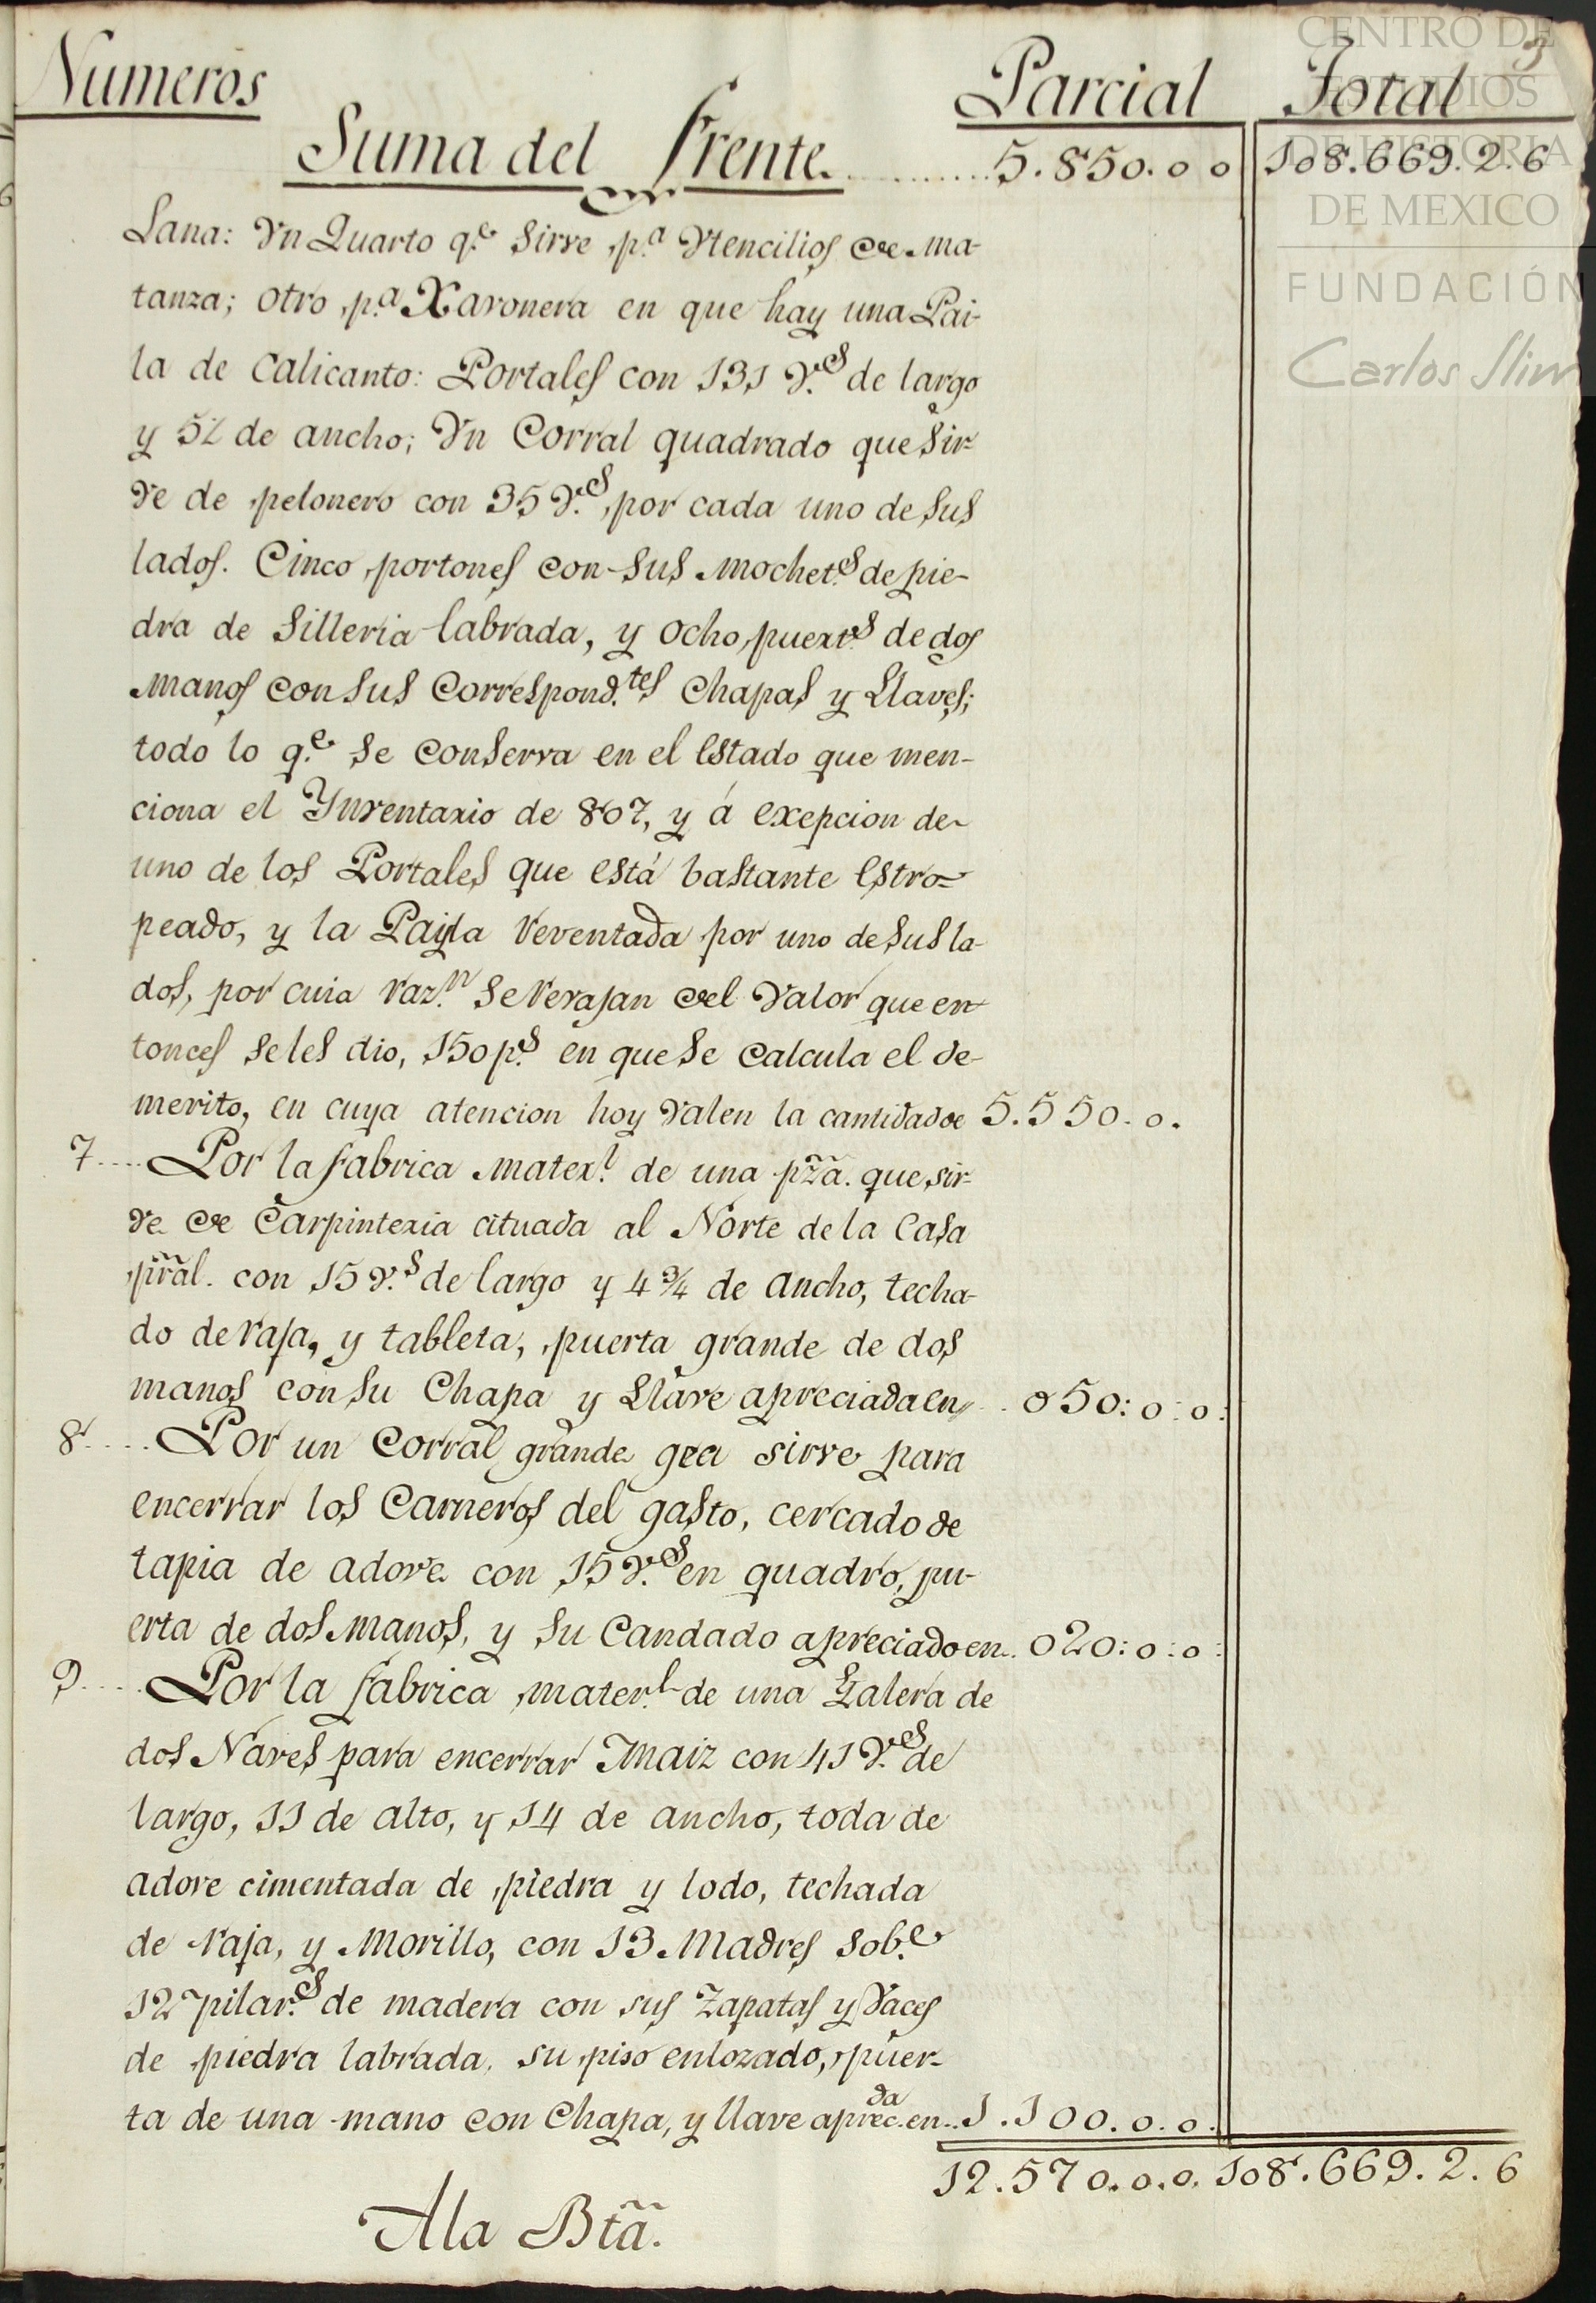 3
Numeros Parcial Total
Suma del frente. 5.850.0 0 108.669.2.6
Lana: Vn Quarto q.e sirve p.a Vtencilios de ma-
tanza; otro p.a Xavonera en que hay una Pai-
la de calicanto: Portales con 131 v.s de largo
y 52 de ancho; Vn Corral quadrado que sir-
ve de pelonero con 35 v.s por cada uno de sus
lados. Cinco portones con sus mochet.s de pie-
dra de silleria labrada, y ocho puert.s de dos
manos con sus correspond.tes chapas y Llaves;
todo lo q.e se conserva en el estado que men-
ciona el Ynventario de 807, y á exepcion de
uno de los Portales que está bastante estro=
peado, y la Payla reventada por uno de sus la-
dos, por cuia raz.n se revajan del valor que en-
tonces se les dio, 150 p.s en que se calcula el de-
merito, en cuya atencion hoy valen la cantidad de 5.550.0.
7.... Por la fabrica mater.l de una pz̃a. que sir-
ve de Carpinteria cituada al Norte de la Casa
pr̃al. con 15 v.s de largo y 4 3/4 de ancho, techa-
do de raja, y tableta, puerta grande de dos
manos con su Chapa y Llave apreciada en .. 050:0:0:
8.... Por un Corral grande qea sirve para
encerrar los Carneros del gasto, cercado de
tapia de adove con 15 v.s en quadro, pu-
erta de dos manos, y su Candado apreciado en.. 020:0:0:
9.... Por la fabrica mater.l de una Galera de
dos Naves para encerrar maiz con 41 v.s de
largo, 11 de alto, y 14 de ancho, toda de
adove cimentada de piedra y lodo, techada
de raja, y Morillo, con 13 Madres sob.e
12 pilar.s de madera con sus Zapatas y Vaces
de piedra labrada, su piso enlozado, puer-
ta de una mano con Chapa, y llave aprec.da en.. 1.100.0.0.
12.570.0.0. 108.669.2.6
A la Bt̃a.
CENTRO DE
ESTUDIOS
DE HISTORIA
DE MEXICO
FUNDACIÓN
Carlos Slim